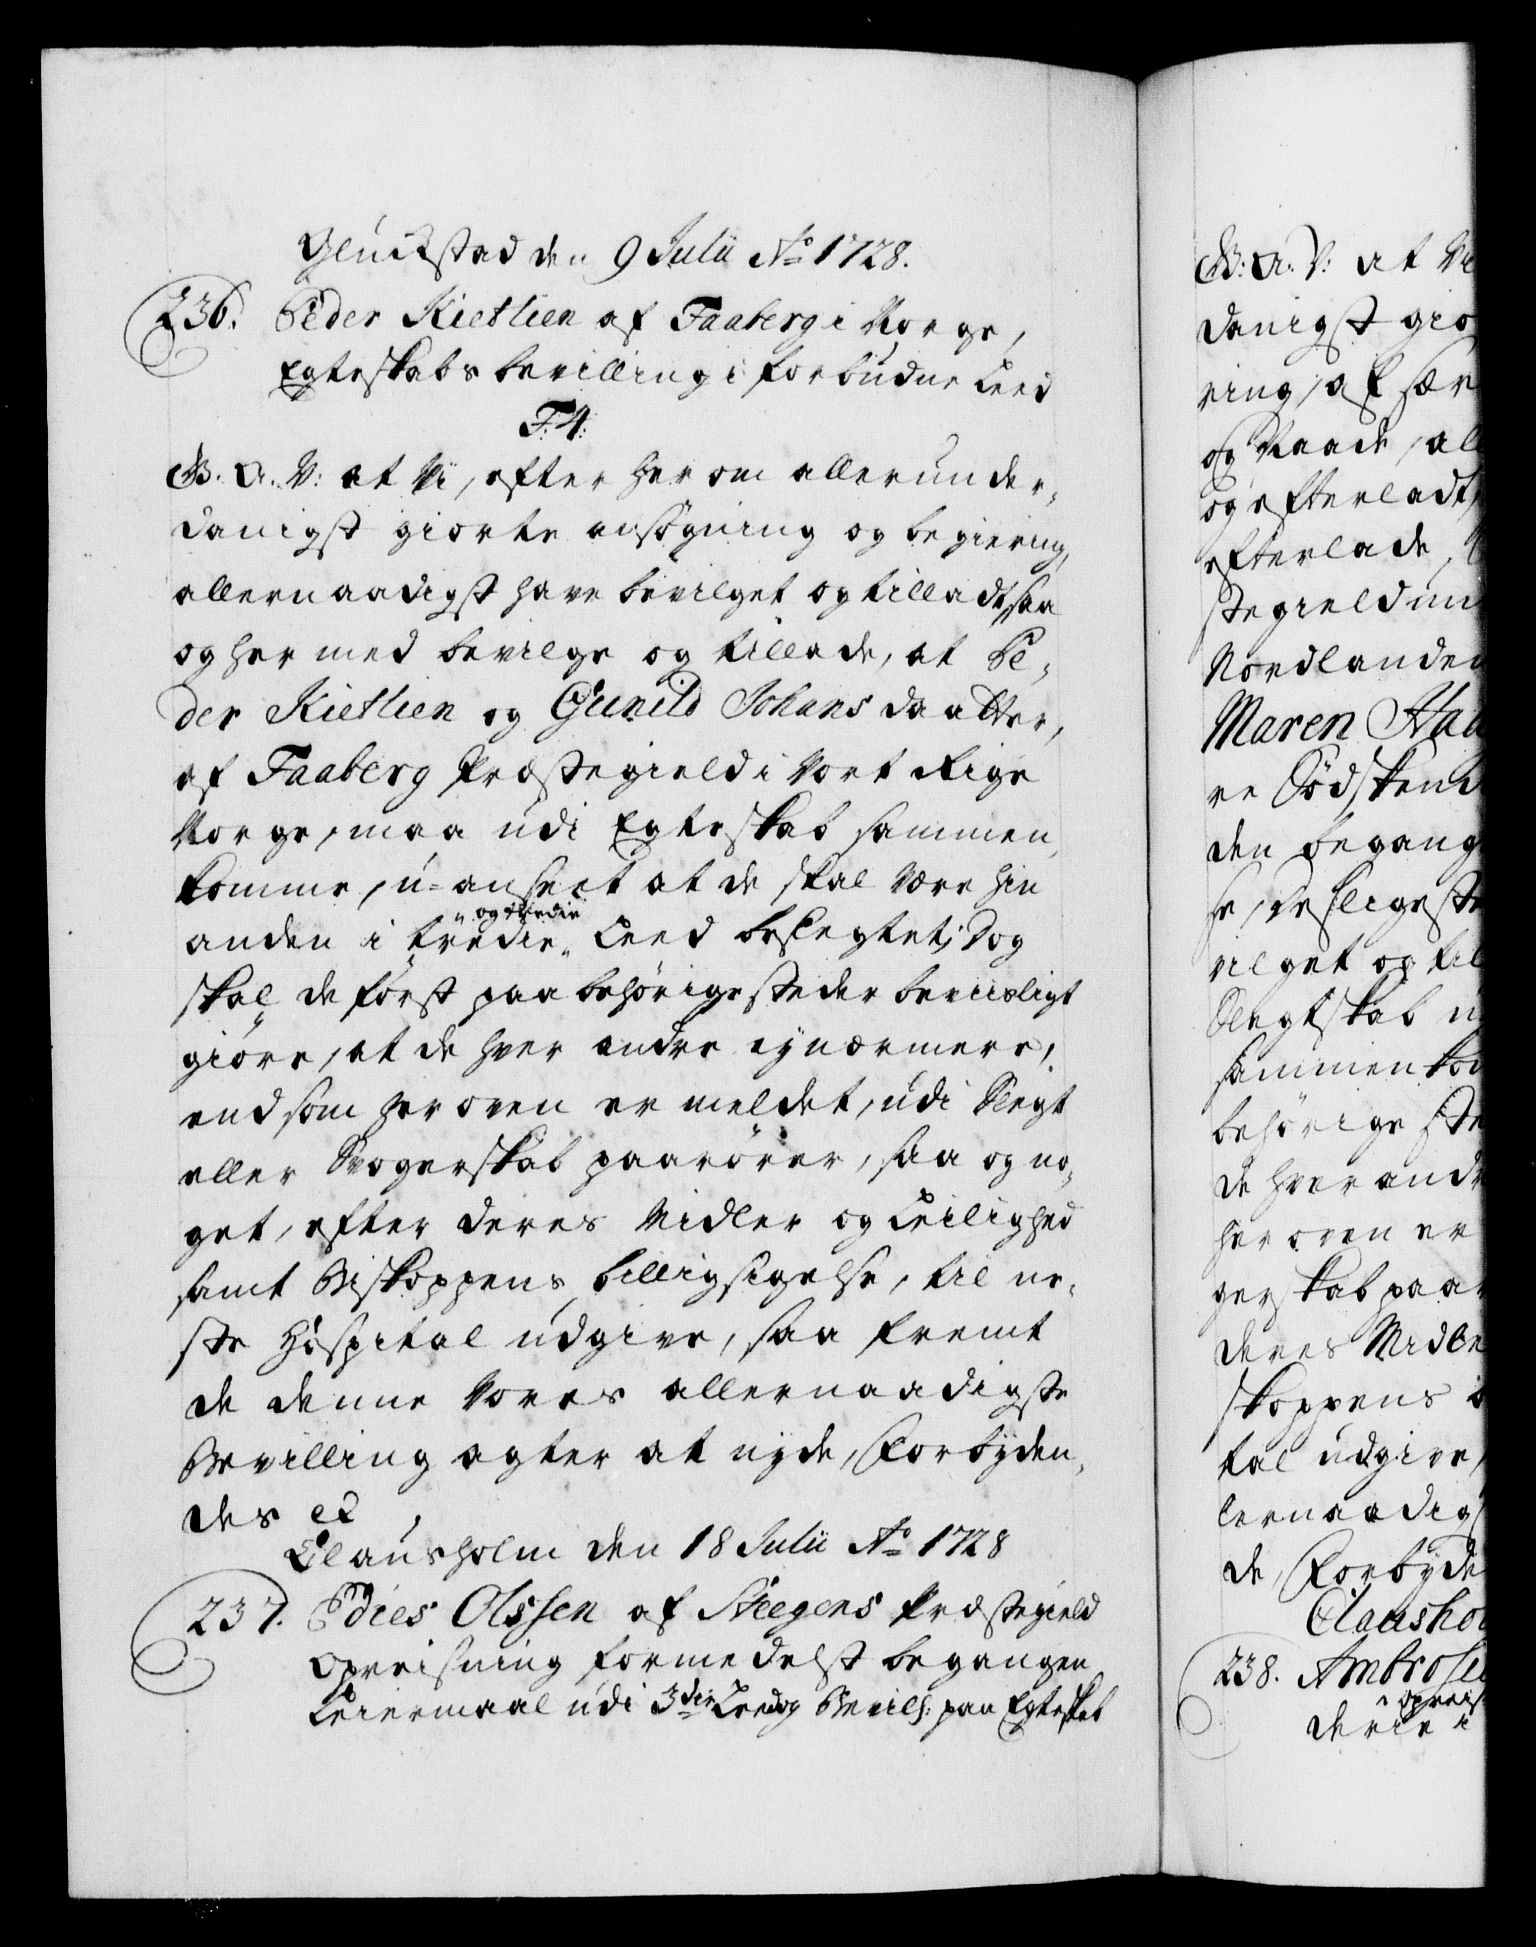 Glückstad den 9 Julii Ao 1728.
236. Peder Kietlien af Faaberg i Norge,
Egteskabs bevilling i forbudne Leed
F. 4:
G. A. V: at Vi, efter herom allerunder-
danigst giorte ansøgning og begiering,
allernaadigst have bevilget og tilladt, saa
og hermed bevilge og tillade, at Pe-
der Kietlien og Gunild Johans daatter,
af Faaberg Præstegield i Vort Rige
Norge, maa udi Egteskab sammen
komme, u-anseet at de skal være hin
anden i tredie og tredie Leed beslegtet; Dog
skal de først paa behørige steder beviisligt
giøre, at de hver andre ey nærmere,
end som her oven er meldet, udi Slegt
eller Svogerskab paarører, saa og no-
get, efter deres Midler og Leilighed
samt Biskoppens billigsigelse, til ne-
ste Hospital udgive, saa fremt
de denne Vores allernaadigste
Bevilling agter at nyde, Forbyden-
des etc
Clausholm den 18 Julii Ao 1728
237. Edies Olssen af Steegens Præstegield
Opreisning formedelst begangen
Leiermaal udi 3die Leed og Bevilg: paa Egteskab
G: A: V: at Vi
danigst gio
ring, af sær
og Naade, al
og efterladt,
efterlade,
stegield un
Nordlanden
Maren
re Sødsken
den begang
se, desligeste
vilget og til
Slegtskab u
sammen kom
behørige ste
de hver andr
her oven er
gerskab paar
deres Midle
skoppens b
tal udgive,
lernaadigs
de, Forbyde
Clausho
238. Ambrosi
opreis
derie i